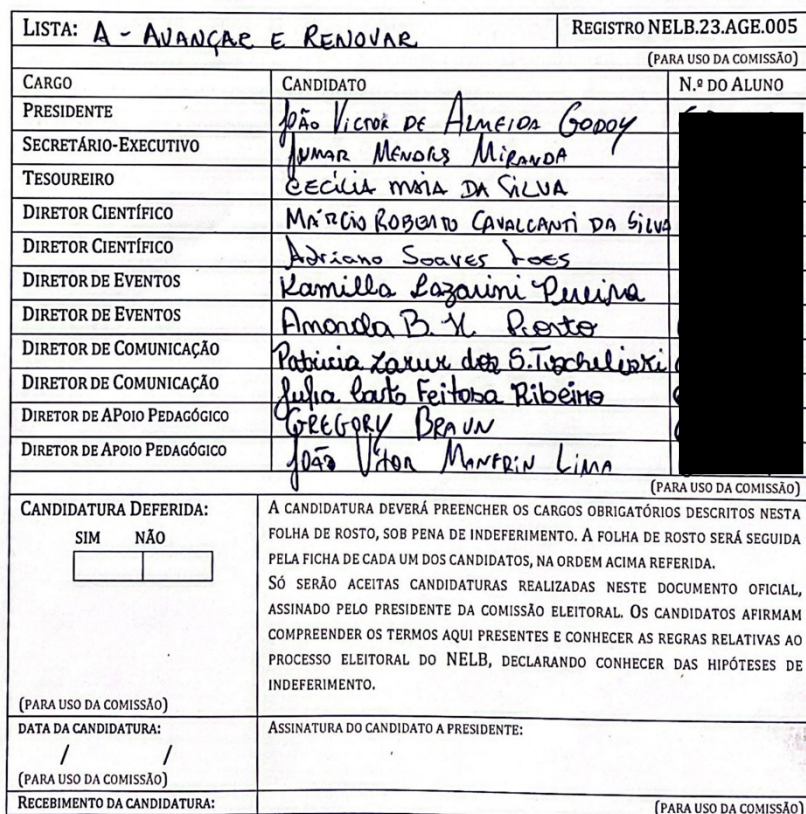 LISTA: A - AVANÇAR E RENOVAR REGISTRO NELB.23.AGE.005
(PARA USO DA COMISSÃO)
CARGO CANDIDATO N.º DO ALUNO
PRESIDENTE JOÃO VICTOR DE ALMEIDA GODOY
SECRETÁRIO-EXECUTIVO MENDES MIRANDA
TESOUREIRO CECÍLIA MAIA DA SILVA
DIRETOR CIENTÍFICO MÁRCIO ROBERTO CAVALCANTI DA SILVA
DIRETOR CIENTÍFICO Adriano Soares
DIRETOR DE EVENTOS Kamilla Lazarini Pereira
DIRETOR DE EVENTOS Amanda B. N.
DIRETOR DE COMUNICAÇÃO Patricia Zarur dos S.
DIRETOR DE COMUNICAÇÃO Julia Couto Feitosa Ribeiro
DIRETOR DE APOIO PEDAGÓGICO GREGORY BRAUN
DIRETOR DE APOIO PEDAGÓGICO JOÃO VITOR MANFRIN LIMA
(PARA USO DA COMISSÃO)
CANDIDATURA DEFERIDA:
SIM NÃO
(PARA USO DA COMISSÃO)
A CANDIDATURA DEVERÁ PREENCHER OS CARGOS OBRIGATÓRIOS DESCRITOS NESTA
FOLHA DE ROSTO, SOB PENA DE INDEFERIMENTO. A FOLHA DE ROSTO SERÁ SEGUIDA
PELA FICHA DE CADA UM DOS CANDIDATOS, NA ORDEM ACIMA REFERIDA.
SÓ SERÃO ACEITAS CANDIDATURAS REALIZADAS NESTE DOCUMENTO OFICIAL,
ASSINADO PELO PRESIDENTE DA COMISSÃO ELEITORAL. OS CANDIDATOS AFIRMAM
COMPREENDER OS TERMOS AQUI PRESENTES E CONHECER AS REGRAS RELATIVAS AO
PROCESSO ELEITORAL DO NELB, DECLARANDO CONHECER DAS HIPÓTESES DE
INDEFERIMENTO.
DATA DA CANDIDATURA: ASSINATURA DO CANDIDATO A PRESIDENTE:
/ /
(PARA USO DA COMISSÃO)
RECEBIMENTO DA CANDIDATURA: (PARA USO DA COMISSÃO)